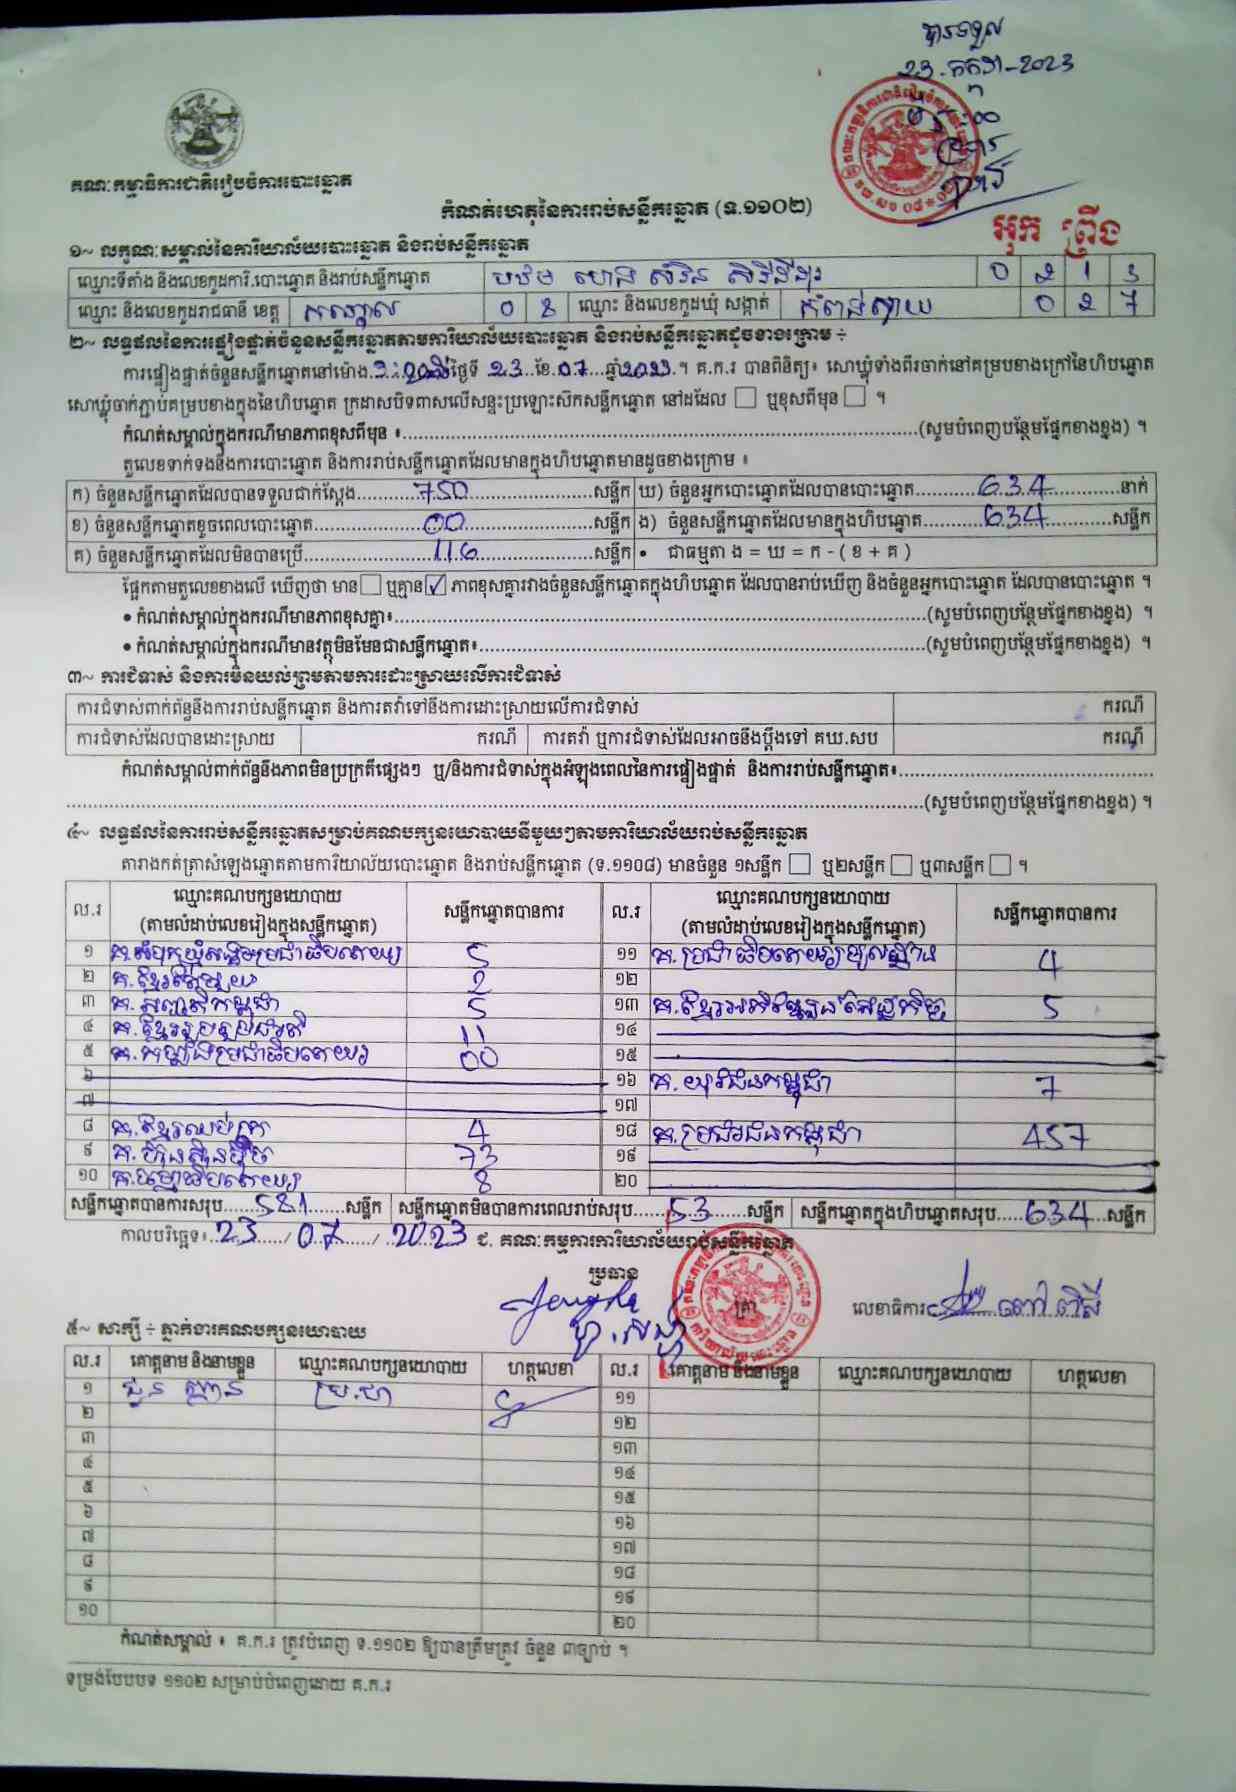 បានទទួល
23.កក្កដា-2023
គណៈកម្មាធិការជាតិរៀបចំការបោះឆ្នោត
កំណត់ហេតុនៃការរាប់សន្លឹកឆ្នោត (ទ.១១០២)
អុក ព្រឹង
១~ លក្ខណៈសម្គាល់នៃការិយាល័យបោះឆ្នោត និងរាប់សន្លឹកឆ្នោត
ឈ្មោះទីតាំង និងលេខកូដការិ.បោះឆ្នោត និងរាប់សន្លឹកឆ្នោត បឋម ហោង សំរិន សិរីដីដុះ 0 2 1 3
ឈ្មោះ និងលេខកូដរាជធានី ខេត្ត កណ្តាល 0 8 ឈ្មោះ និងលេខកូដឃុំ សង្កាត់ កំពង់ស្វាយ 0 2 7
២~ លទ្ធផលនៃការផ្ទៀងផ្ទាត់ចំនួនសន្លឹកឆ្នោតតាមការិយាល័យបោះឆ្នោត និងរាប់សន្លឹកឆ្នោតដូចខាងក្រោម ÷
ការផ្ទៀងផ្ទាត់ចំនួនសន្លឹកឆ្នោតនៅម៉ោង ថ្ងៃទី 23 ខែ 07 ឆ្នាំ 2023 ។ គ.ក.រ បានពិនិត្យ៖ សោឃ្លុំទាំងពីរចាក់នៅគម្របខាងក្រៅនៃហិបឆ្នោត
សោឃ្លុំចាក់ភ្ជាប់គម្របខាងក្នុងនៃហិបឆ្នោត ក្រដាសបិទពាសលើសន្ទះប្រឡោះសិកសន្លឹកឆ្នោត នៅដដែល ☐ ឬខុសពីមុន ☐ ។
កំណត់សម្គាល់ក្នុងករណីមានភាពខុសពីមុន ៖ (សូមបំពេញបន្ថែមផ្នែកខាងខ្នង) ។
តួលេខទាក់ទងនឹងការបោះឆ្នោត និងការរាប់សន្លឹកឆ្នោតដែលមានក្នុងហិបឆ្នោតមានដូចខាងក្រោម ៖
ក) ចំនួនសន្លឹកឆ្នោតដែលបានទទួលជាក់ស្តែង 750 សន្លឹក ឃ) ចំនួនអ្នកបោះឆ្នោតដែលបានបោះឆ្នោត 634 នាក់
ខ) ចំនួនសន្លឹកឆ្នោតខូចពេលបោះឆ្នោត 00 សន្លឹក ង) ចំនួនសន្លឹកឆ្នោតដែលមានក្នុងហិបឆ្នោត 634 សន្លឹក
គ) ចំនួនសន្លឹកឆ្នោតដែលមិនបានប្រើ 116 សន្លឹក • ជាធម្មតា ង = ឃ = ក - ( ខ + គ )
ផ្អែកតាមតួលេខខាងលើ ឃើញថា មាន ☐ ឬគ្មាន ☑ ភាពខុសគ្នារវាងចំនួនសន្លឹកឆ្នោតក្នុងហិបឆ្នោត ដែលបានរាប់ឃើញ និងចំនួនអ្នកបោះឆ្នោត ដែលបានបោះឆ្នោត ។
• កំណត់សម្គាល់ក្នុងករណីមានភាពខុសគ្នា៖ (សូមបំពេញបន្ថែមផ្នែកខាងខ្នង) ។
• កំណត់សម្គាល់ក្នុងករណីមានវត្ថុមិនមែនជាសន្លឹកឆ្នោត៖ (សូមបំពេញបន្ថែមផ្នែកខាងខ្នង) ។
៣~ ការជំទាស់ និងការមិនយល់ព្រមតាមការដោះស្រាយលើការជំទាស់
ការជំទាស់ពាក់ព័ន្ធនឹងការរាប់សន្លឹកឆ្នោត និងការតវ៉ាទៅនឹងការដោះស្រាយលើការជំទាស់ ករណី
ការជំទាស់ដែលបានដោះស្រាយ ករណី ការតវ៉ា ឬការជំទាស់ដែលអាចនឹងប្តឹងទៅ គឃ.សប ករណី
កំណត់សម្គាល់ពាក់ព័ន្ធនឹងភាពមិនប្រក្រតីផ្សេងៗ ឬ/និងការជំទាស់ក្នុងអំឡុងពេលនៃការផ្ទៀងផ្ទាត់ និងការរាប់សន្លឹកឆ្នោត៖
(សូមបំពេញបន្ថែមផ្នែកខាងខ្នង) ។
៤~ លទ្ធផលនៃការរាប់សន្លឹកឆ្នោតសម្រាប់គណបក្សនយោបាយនីមួយៗតាមការិយាល័យរាប់សន្លឹកឆ្នោត
តារាងកត់ត្រាសំឡេងឆ្នោតតាមការិយាល័យបោះឆ្នោត និងរាប់សន្លឹកឆ្នោត (ទ.១១០៨) មានចំនួន ១សន្លឹក ☐ ឬ២សន្លឹក ☐ ឬ៣សន្លឹក ☐ ។
ល.រ ឈ្មោះគណបក្សនយោបាយ (តាមលំដាប់លេខរៀងក្នុងសន្លឹកឆ្នោត) សន្លឹកឆ្នោតបានការ ល.រ ឈ្មោះគណបក្សនយោបាយ (តាមលំដាប់លេខរៀងក្នុងសន្លឹកឆ្នោត) សន្លឹកឆ្នោតបានការ
១ គ.សំបុកឃ្មុំសង្គមប្រជាធិបតេយ្យ 5 ១១ គ.ប្រជាធិបតេយ្យមូលដ្ឋាន 4
២ 2 ១២
៣ គ.សញ្ជាតិកម្ពុជា 5 ១៣ គ.ខ្មែរអភិវឌ្ឍន៍សេដ្ឋកិច្ច 5
៤ គ.ខ្មែររួបរួមជាតិ 11 ១៤
៥ គ.កម្លាំងប្រជាធិបតេយ្យ 00 ១៥
៦ ១៦ គ.យុវជនកម្ពុជា 7
៧ ១៧
៨ គ.ខ្មែរឈប់ក្រ 4 ១៨ គ.ប្រជាជនកម្ពុជា 457
៩ គ.ហ៊្វុនស៊ិនប៉ិច 73 ១៩
១០ គ.ធម្មាធិបតេយ្យ 8 ២០
សន្លឹកឆ្នោតបានការសរុប 581 សន្លឹក សន្លឹកឆ្នោតមិនបានការពេលរាប់សរុប 53 សន្លឹក សន្លឹកឆ្នោតក្នុងហិបឆ្នោតសរុប 634 សន្លឹក
កាលបរិច្ឆេទ៖ 23 / 07 / 2023 ជ. គណៈកម្មការការិយាល័យរាប់សន្លឹកឆ្នោត
ប្រធាន
ត្រា
លេខាធិការ
៥~ សាក្សី ÷ ភ្នាក់ងារគណបក្សនយោបាយ
ល.រ គោត្តនាម និងនាមខ្លួន ឈ្មោះគណបក្សនយោបាយ ហត្ថលេខា ល.រ គោត្តនាម និងនាមខ្លួន ឈ្មោះគណបក្សនយោបាយ ហត្ថលេខា
១ ជួន ញាន ប្រ.ជា ១១
២ ១២
៣ ១៣
៤ ១៤
៥ ១៥
៦ ១៦
៧ ១៧
៨ ១៨
៩ ១៩
១០ ២០
កំណត់សម្គាល់ ៖ គ.ក.រ ត្រូវបំពេញ ទ.១១០២ ឱ្យបានត្រឹមត្រូវ ចំនួន ៣ច្បាប់ ។
ទម្រង់បែបបទ ១១០២ សម្រាប់បំពេញដោយ គ.ក.រ